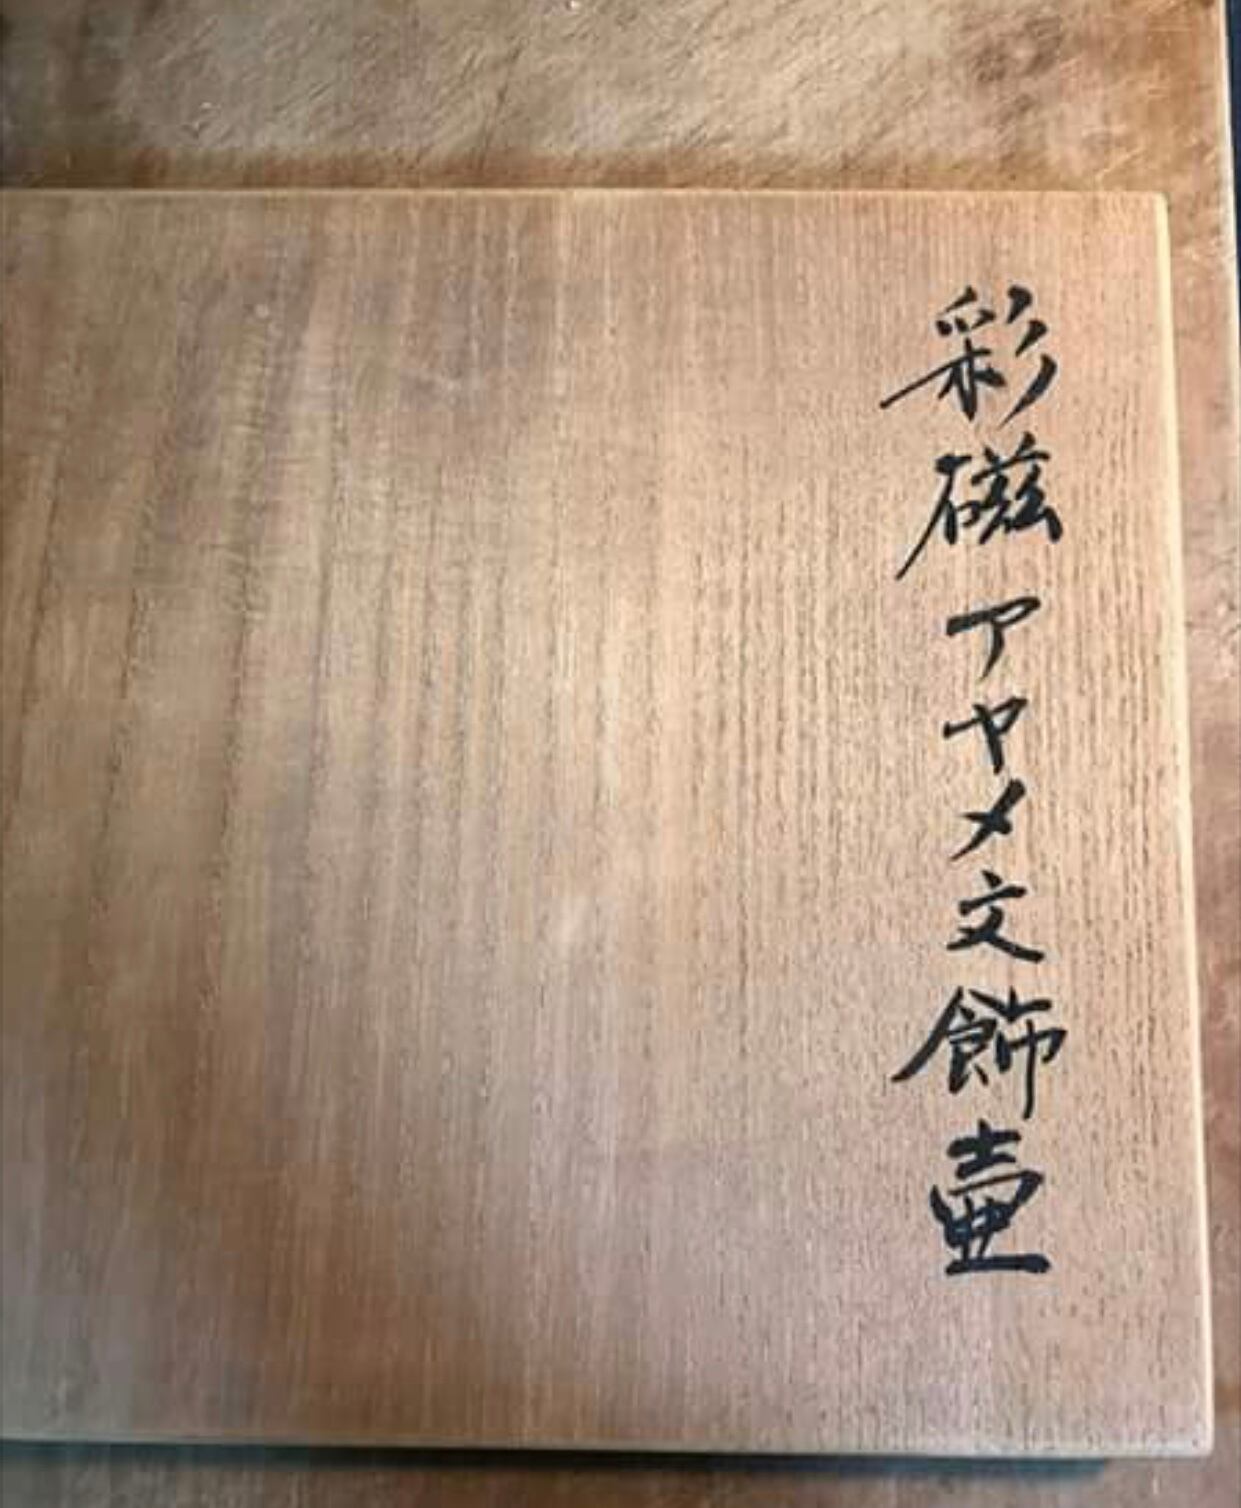 彩磁アヤメ文飾壷